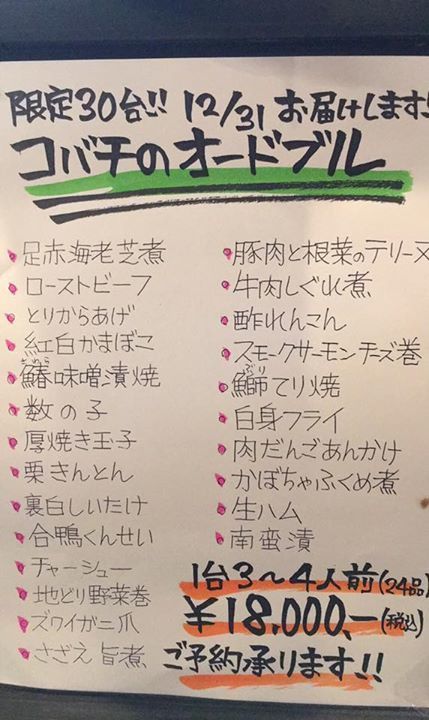 限定30台!! 12/31 お届けします!!
コバチのオードブル
足赤海老芝煮
ローストビーフ
とりからあげ
紅白かまぼこ
さわら
鰆味噌漬焼
数の子
厚焼き玉子
栗きんとん
裏白しいたけ
合鴨くんせい
チャーシュー
地どり野菜巻
ズワイガニ爪
さざえ旨煮
豚肉と根菜のテリーヌ
牛肉しぐれ煮
酢れんこん
スモークサーモンチーズ巻
ぶり
鰤てり焼
白身フライ
肉だんごあんかけ
かぼちゃふくめ煮
生ハム
南蛮漬
1台3〜4人前(24品)
¥18,000,-(税込)
ご予約承ります!!